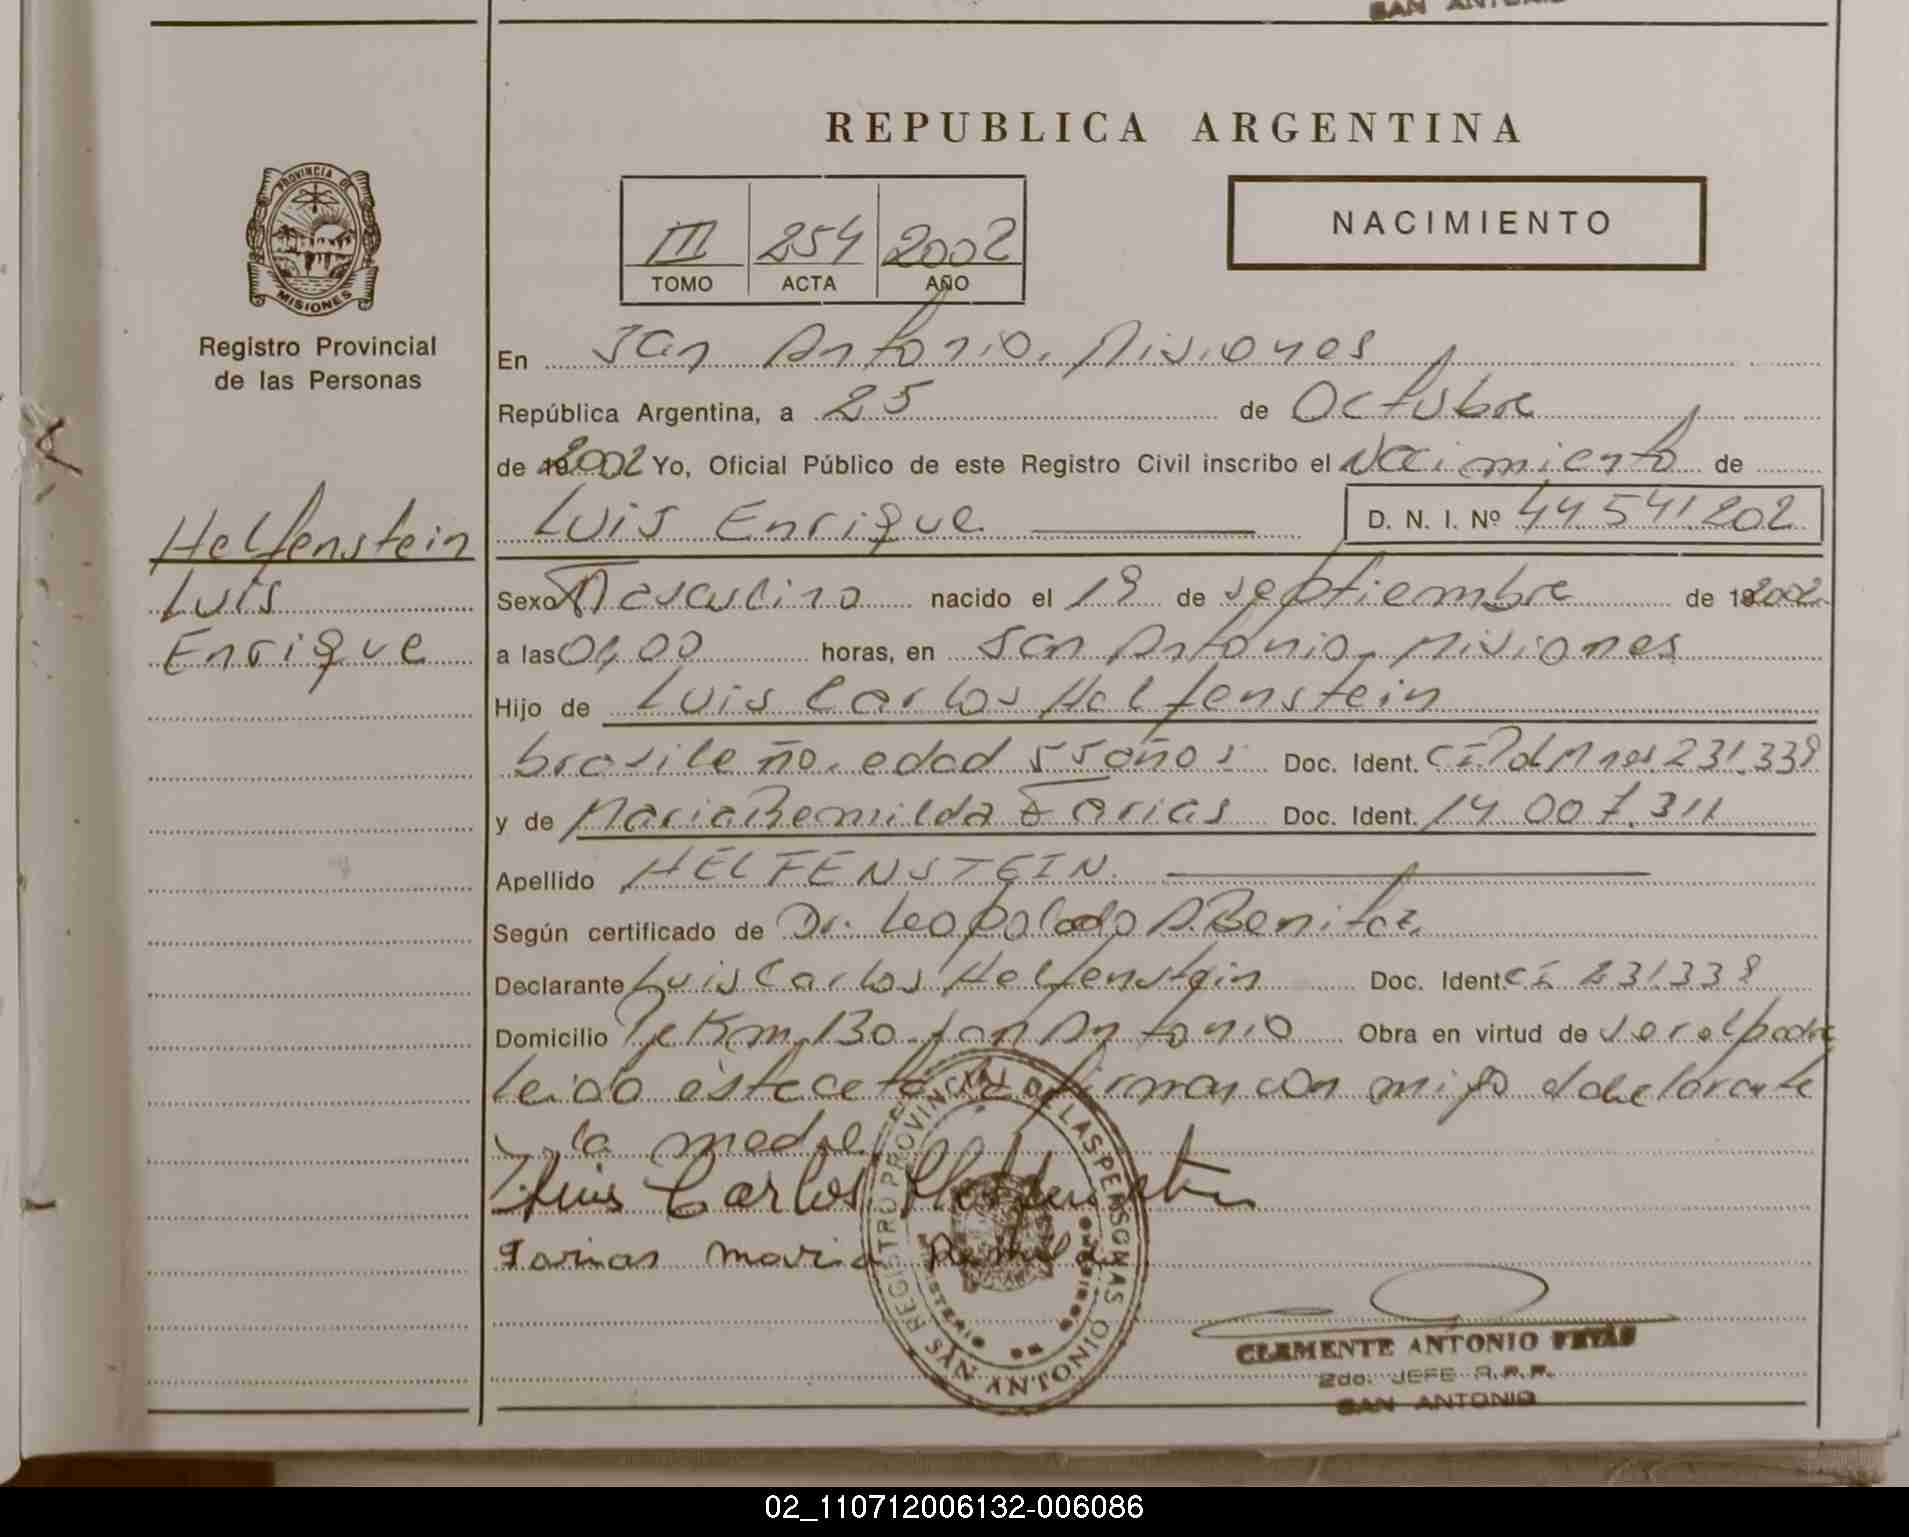 SAN ANTONIO
REPUBLICA ARGENTINA
PROVINCIA DE
MISIONES
Registro Provincial
de las Personas
III 254 2002
TOMO ACTA AÑO
NACIMIENTO
En San Antonio, Misiones
República Argentina, a 25 de Octubre
de 2002 Yo, Oficial Público de este Registro Civil inscribo el Nacimiento de
Luis Enrique D. N. I. Nº 44 541 202
Helfenstein
Luis
Enrique
Sexo Masculino nacido el 19 de septiembre de 2002
a las 04,00 horas, en San Antonio, Misiones
Hijo de Luis Carlos Helfenstein
brasileño. edad 55 años Doc. Ident. 231.339
y de Maria Remilda Farias Doc. Ident. 14.007.311
Apellido HELFENSTEIN
Según certificado de Dr. Leopoldo A. Benitez
Declarante Luis Carlos Helfenstein Doc. Ident. CI 231.339
Domicilio Pje Km. 130. San Antonio Obra en virtud de ser el padre
leido este acta la firman con migo el declarante
y la madre
Luis Carlos Helfenstein
Farias Maria
REGISTRO PROVINCIAL DE LAS PERSONAS
SAN ANTONIO
CLEMENTE ANTONIO
2do. JEFE R.P.P.
SAN ANTONIO
02_110712006132-006086